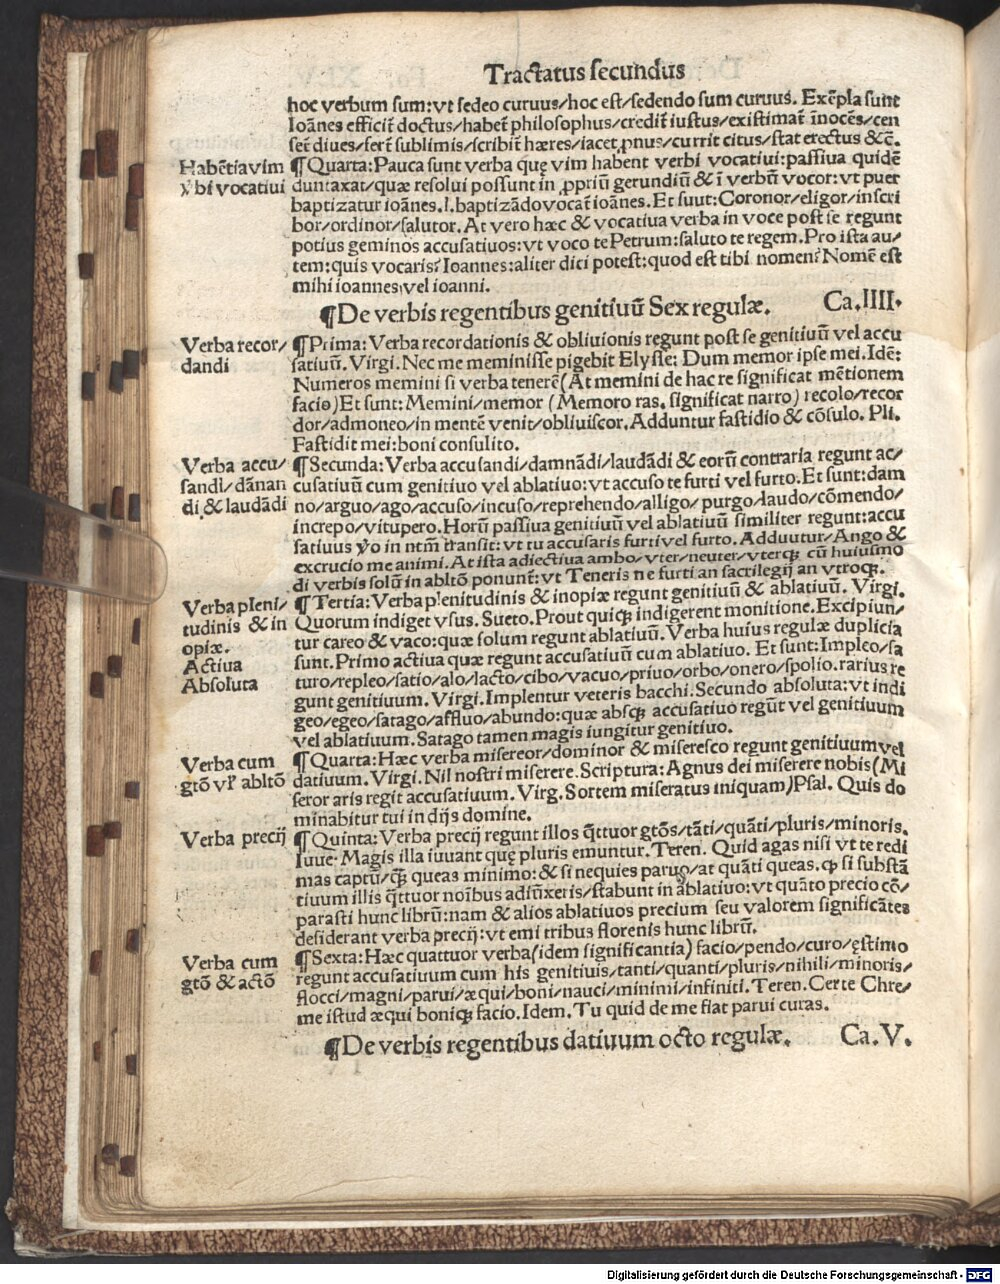 Tractatus secundus
hoc verbum sum: vt sedeo curuus/hoc est/sedendo sum curuus. Exēpla sunt
Ioānes efficit̄ doctus/habet̄ philosophus/credit̄ iustus/existimat̄ īnocēs/cen
set̄ diues/fert̄ sublimis/scribit̄ hæres/iacet ꝓnus/currit citus/stat erectus &c̄.
Habētia vim
ỽbi vocatiui
¶Quarta: Pauca sunt verba quę vim habent verbi vocatiui: passiua quidē
duntaxat/quæ resolui possunt in ꝓpriū gerundiū & ī verbū vocor: vt puer
baptizatur ioānes .I. baptizādo vocat̄ ioānes. Et suut: Coronor/eligor/inscri
bor/ordinor/salutor. At vero hæc & vocatiua verba in voce post se regunt
potius geminos accusatiuos: vt voco te Petrum: saluto te regem. Pro ista au/
tem: quis vocaris? Ioannes: aliter dici potest: quod est tibi nomen? Nomē est
mihi ioannes vel ioanni.
¶De verbis regentibus genitiuū Sex regulæ. Ca. IIII.
Verba recor/
dandi
¶Prima: Verba recordationis & obliuionis regunt post se genitiuū vel accu
satiuū. Virgi. Nec me meminisse pigebit Elysse: Dum memor ipse mei. Idē:
Numeros memini si verba tenerē (At memini de hac re significat mētionem
facio) Et sunt: Memini/memor (Memoro ras. significat narro) recolo/recor
dor/admoneo/in mentē venit/obliuiscor. Adduntur fastidio & cōsulo. Pli.
Fastidit mei: boni consulito.
Verba accu/
sandi/dānan
di & laudādi
¶Secunda: Verba accusandi/damnādi/laudādi & eorū contraria regunt ac/
cusatiuū cum genitiuo vel ablatiuo: vt accuso te furti vel furto. Et sunt: dam
no/arguo/ago/accuso/incuso/reprehendo/alligo/purgo/laudo/cōmendo/
increpo/vitupero. Horū passiua genitiuū vel ablatiuū similiter regunt: accu
satiuus ỽo in ntm̄ transit: vt tu accusaris furti vel furto. Adduutur/Ango &
excrucio me animi. At ista adiectiua ambo/vter/neuter/vterqꝫ cū huiusmo
di verbis solū in abltō ponunt̄: vt Teneris ne furti an sacrilegij an vtroqꝫ.
Verba pleni/
tudinis & in
opiæ.
Actiua
Absoluta
¶Tertia: Verba plenitudinis & inopiæ regunt genitiuū & ablatiuū. Virgi.
Quorum indiget vsus. Sueto. Prout quiqꝫ indigerent monitione. Excipiun/
tur careo & vaco: quæ solum regunt ablatiuū. Verba huius regulæ duplicia
sunt. Primo actiua quæ regunt accusatiuū cum ablatiuo. Et sunt: Impleo/sa
turo/repleo/satio/alo/lacto/cibo/vacuo/priuo/orbo/onero/spolio. rarius re
gunt genitiuum. Virgi. Implentur veteris bacchi. Secundo absoluta: vt indi
geo/egeo/satago/affluo/abundo: quæ absqꝫ accusatiuo regūt vel genitiuum
vel ablatiuum. Satago tamen magis iungitur genitiuo.
Verba cum
gtō vꝉ abltō
¶Quarta: Hæc verba misereor/dominor & miseresco regunt genitiuum vel
datiuum. Virgi. Nil nostri miserere. Scriptura: Agnus dei miserere nobis (Mi
seror aris regit accusatiuum. Virg. Sortem miseratus iniquam) Psal. Quis do
minabitur tui in dijs domine.
Verba precij
¶Quinta: Verba precij regunt illos q̄ttuor gtōs/tāti/quāti/pluris/minoris.
Iuue. Magis illa iuuant quę pluris emuntur. Teren. Quid agas nisi vt te redi
mas captū/q̄ꝫ queas minimo: & si nequies paruo/at quāti queas. ꝙ si substā
tiuum illis q̄ttuor noībus adiūxeris/stabunt in ablatiuo: vt quāto precio cō/
parasti hunc librū: nam & alios ablatiuos precium seu valorem significātes
desiderant verba precij: vt emi tribus florenis hunc librū.
Verba cum
gtō & actō
¶Sexta: Hæc quattuor verba (idem significantia) facio/pendo/curo/ęstimo
regunt accusatiuum cum his genitiuis/tanti/quanti/pluris/nihili/minoris/
flocci/magni/parui/æqui/boni/nauci/minimi/infiniti. Teren. Certe Chre/
me istud æqui boniqꝫ facio. Idem. Tu quid de me fiat parui curas.
¶De verbis regentibus datiuum octo regulæ. Ca. V.
Digitalisierung gefördert durch die Deutsche Forschungsgemeinschaft - DFG